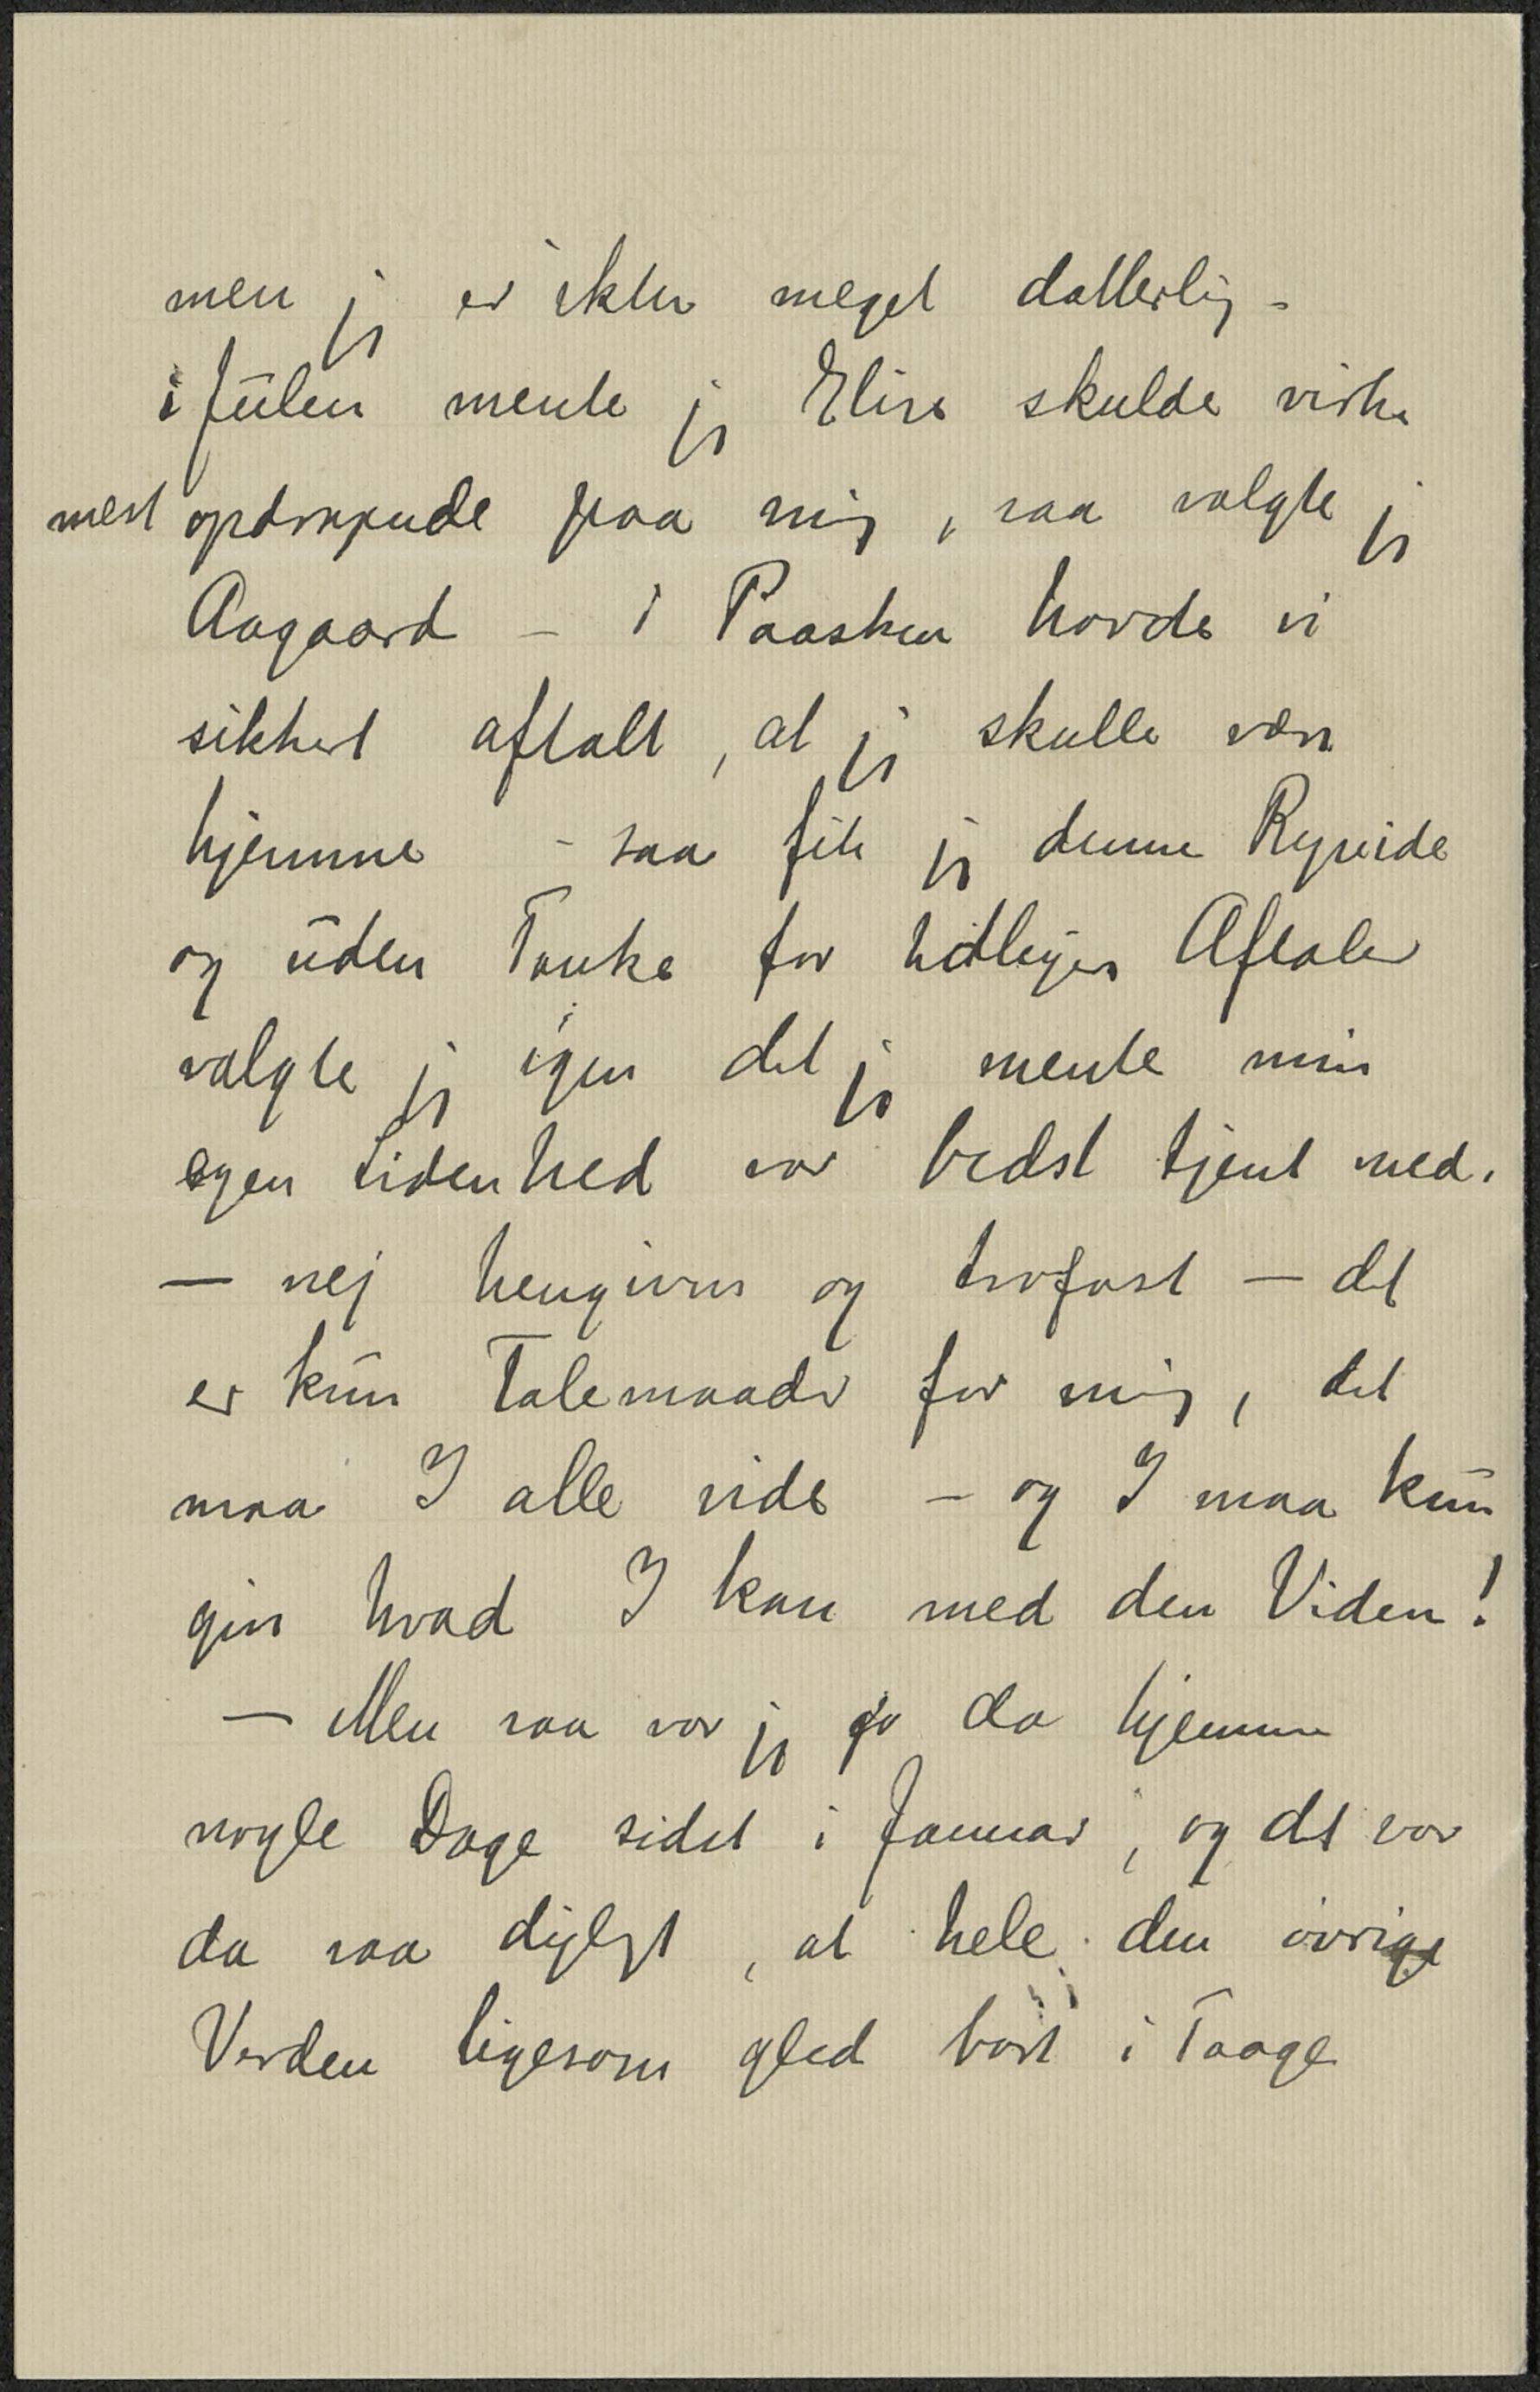 men jeg er ikke meget datterlig -
i Julen mente jeg Elise skulde virke
mest opdragende paa mig, saa valgte jeg
Aagaard - i Paasken havde vi
sikkert aftalt, at jeg skulle være
hjemme - saa fik jeg denne Rypeide
og uden Tanke for tidligere Aftaler
valgte jeg igen det jeg mente min
egen Lidenhed var bedst tjent med.
- nej hengiven og trofast - det
er kun Talemaader for mig, det
maa I alle vide - og I maa kun
giøre hvad I kan med den Viden!
- Men saa var jeg jo da hjemme
nogle Dage sidst i Januar, og det var
da saa dejligt, at hele den øvrige
Verden ligesom gled bort i Taage